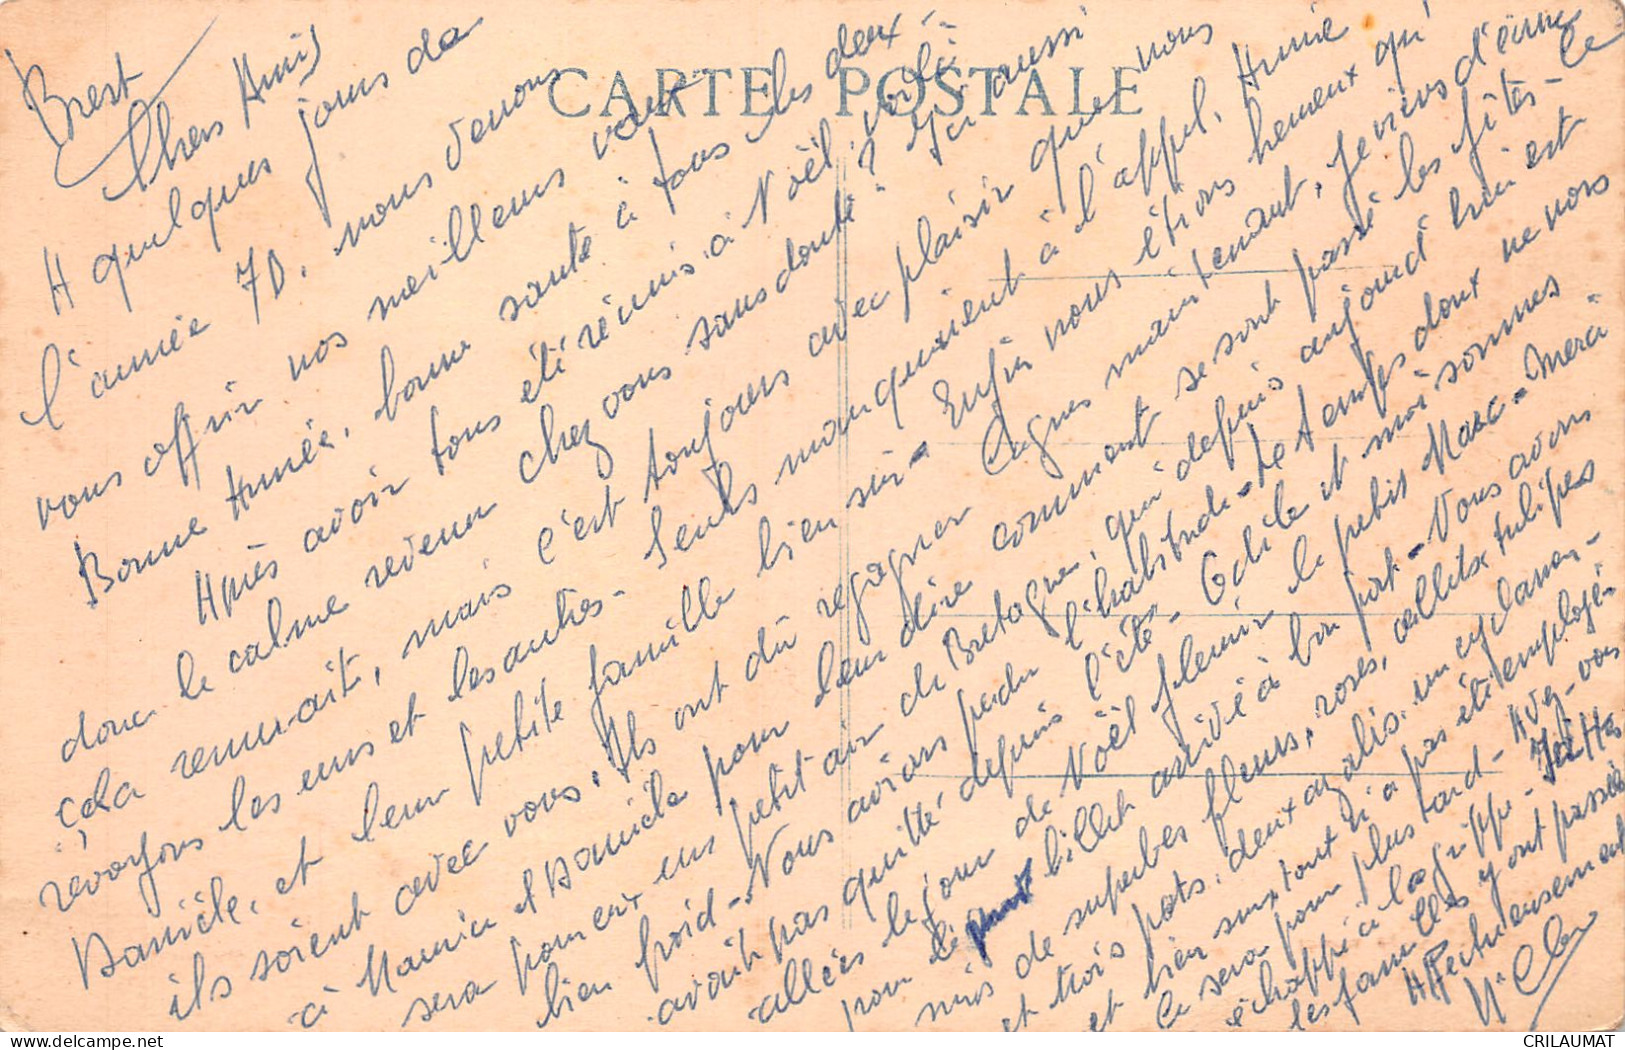 CARTE POSTALE
Brest
Chers Amis
A quelques jours de
l'année 70, nous venons
vous offrir nos meilleurs vœux
Bonne Année, bonne santé à tous les deux -
Après avoir tous été réunis à Noël, voilà
donc le calme revenu chez vous sans doute? Ici aussi
cela remuait, mais c'est toujours avec plaisir que nous
revoyons les uns et les autres - Seuls manquaient à l'appel, Annie
Danièle, et leur petite famille bien sûr - Enfin nous étions heureux qu'
ils soient avec vous. Ils ont dû regagner Cagnes maintenant, je viens d'écrire
à Maurice et Danièle pour leur dire comment se sont passé les fêtes - Ce
sera pour eux un petit air de Bretagne, qui depuis aujourd'hui est
bien froid - Nous avions perdu l'habitude - Le temps doux ne nous
avait pas quitté depuis l'été - Odile et moi sommes
allées le jour de Noël fleurir le petit Marc - Merci
pour le billet arrivé à bon port - Vous avons
mis de superbes fleurs, roses, œillets tulipes
et trois pots: deux azalis, un cyclamen -
et bien surtout n'a pas été employé
ce sera pour plus tard - Avez-vous
échappé à la grippe - Ici ttes
les familles y ont passées
Affectueusement